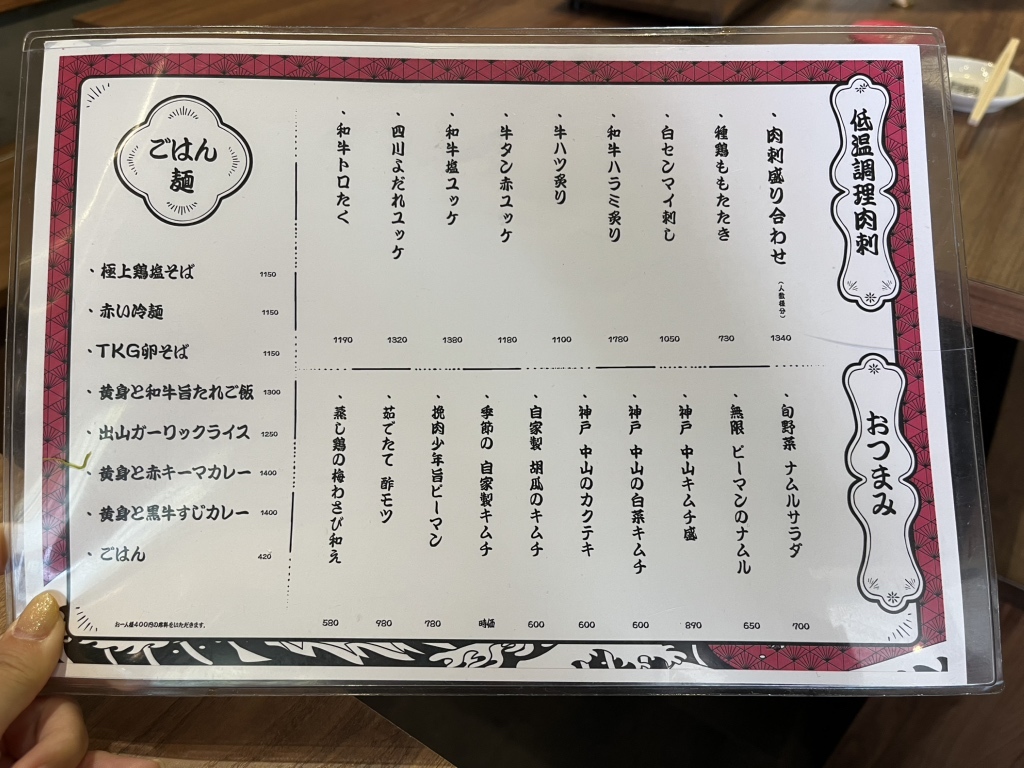 低温調理肉刺
・肉刺盛り合わせ（人数様分） 1340
・種鶏ももたたき 730
・白センマイ刺し 1050
・和牛ハラミ炙り 1780
・牛ハツ炙り 1100
・牛タン赤ユッケ 1180
・和牛塩ユッケ 1380
・四川よだれユッケ 1320
・和牛トロたく 1190
おつまみ
・旬野菜 ナムルサラダ 700
・無限 ピーマンのナムル 650
・神戸 中山キムチ盛 890
・神戸 中山の白菜キムチ 600
・神戸 中山のカクテキ 600
・自家製 胡瓜のキムチ 600
・季節の 自家製キムチ 時価
・挽肉少年旨ピーマン 780
・茹でたて 酢モツ 980
・蒸し鶏の梅わさび和え 580
ごはん
麺
・極上鶏塩そば 1150
・赤い冷麺 1150
・TKG卵そば 1150
・黄身と和牛旨たれご飯 1300
・出山ガーリックライス 1250
・黄身と赤キーマカレー 1400
・黄身と黒牛すじカレー 1400
・ごはん 420
お一人様400円の席料をいただきます。